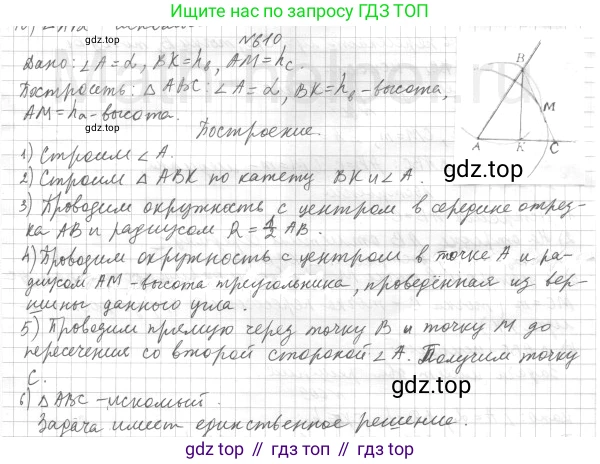 Ищите нас по запросу ГДЗ ТОП
gdz.top
№610
Дано: ∠A = α, BK = h_b, AM = h_c.
Построить: △ ABC: ∠A = α, BK = h_b - высота,
AM = h_a - высота.
Построение.
1) Строим ∠ A.
2) Строим △ ABK по катету BK и ∠ A.
3) Проводим окружность с центром в середине отрез-
ка AB и радиусом R = 1/2 AB.
4) Проводим окружность с центром в точке A и ра-
диусом AM - высота треугольника, проведённая из вер-
шины данного угла.
5) Проводим прямую через точку B и точку M до
пересечение со второй стороной ∠ A. Получим точку
C.
6) △ ABC - искомый.
Задача имеет единственное решение.
B
M
A
K
C
gdz.top
gdz.top
gdz.top // гдз.топ // gdz.top // гдз.топ